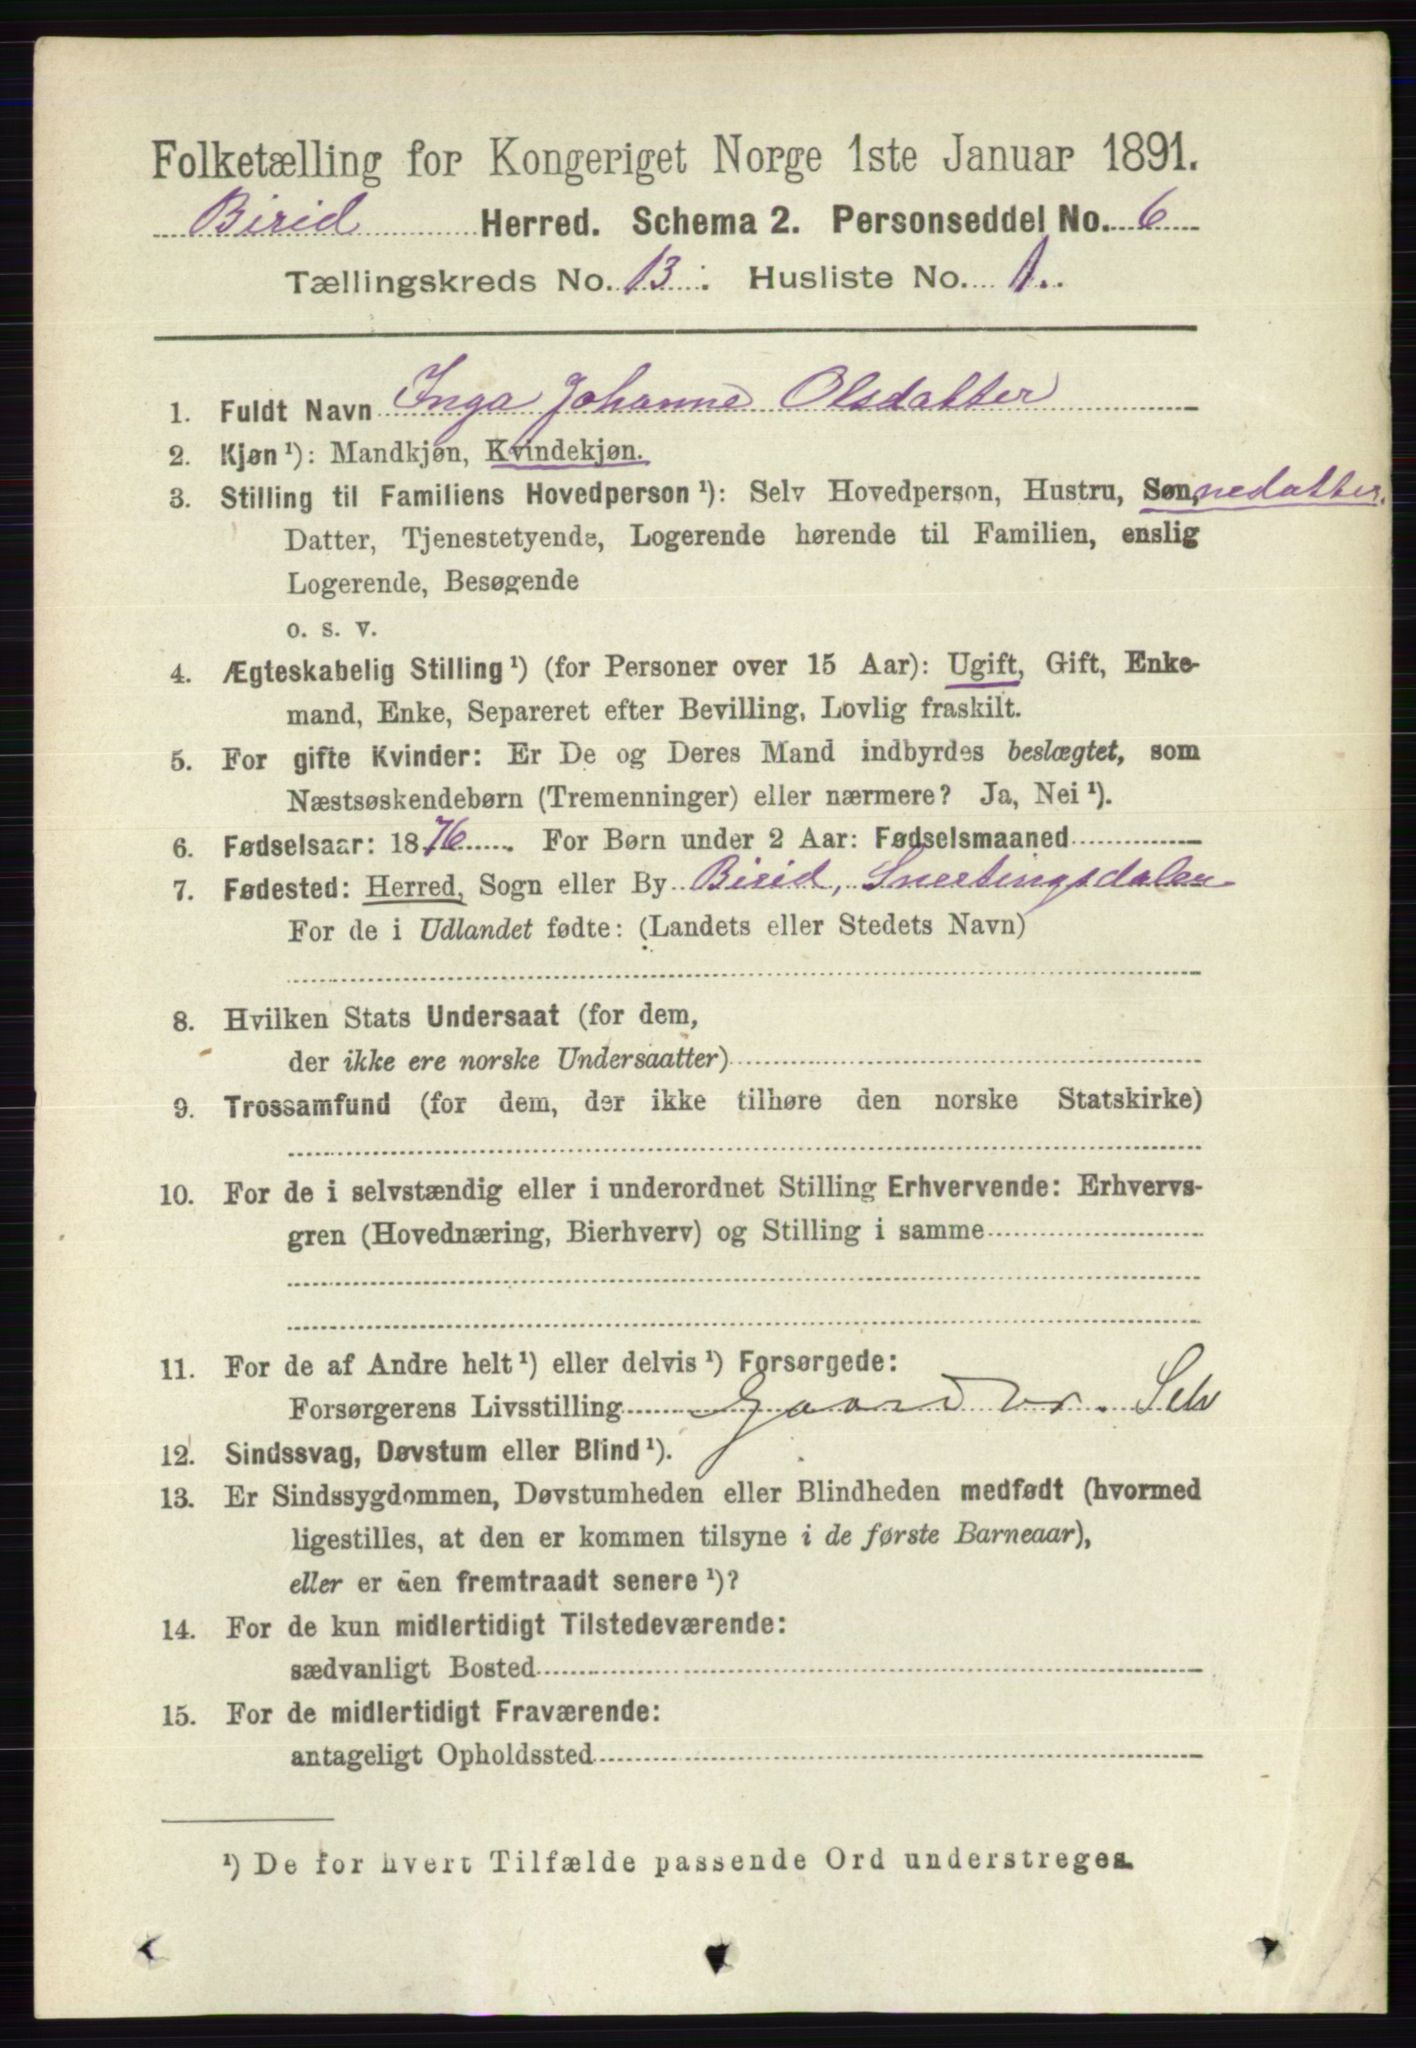 Folketælling for Kongeriget Norge 1ste Januar 1891.
Birid Herred. Schema 2. Personseddel No. 6
Tællingskreds No. 13. Husliste No. 1.
1. Fuldt Navn Inga Johanne Olsdatter
2. Kjøn¹): Mandkjøn, Kvindekjøn.
3. Stilling til Familiens Hovedperson¹): Selv Hovedperson, Hustru, Søn, nedatter.
Datter, Tjenestetyende, Logerende hørende til Familien, enslig
Logerende, Besøgende
o. s. v.
4. Ægteskabelig Stilling¹) (for Personer over 15 Aar): Ugift, Gift, Enke-
mand, Enke, Separeret efter Bevilling, Lovlig fraskilt.
5. For gifte Kvinder: Er De og Deres Mand indbyrdes beslægtet, som
Næstsøskendebørn (Tremenninger) eller nærmere? Ja, Nei¹).
6. Fødselsaar: 1876. For Børn under 2 Aar: Fødselsmaaned
7. Fødested: Herred, Sogn eller By Birid, Snertingsdalen
For de i Udlandet fødte: (Landets eller Stedets Navn)
8. Hvilken Stats Undersaat (for dem,
der ikke ere norske Undersaatter)
9. Trossamfund (for dem, der ikke tilhøre den norske Statskirke)
10. For de i selvstændig eller i underordnet Stilling Erhvervende: Erhvervs-
gren (Hovednæring, Bierhverv) og Stilling i samme
11. For de af Andre helt¹) eller delvis¹) Forsørgede:
Forsørgerens Livsstilling Gaardbr. Selv
12. Sindssvag, Døvstum eller Blind¹).
13. Er Sindssygdommen, Døvstumheden eller Blindheden medfødt (hvormed
ligestilles, at den er kommen tilsyne i de første Barneaar),
eller er den fremtraadt senere¹)?
14. For de kun midlertidigt Tilstedeværende:
sædvanligt Bosted
15. For de midlertidigt Fraværende:
antageligt Opholdssted
¹) De for hvert Tilfælde passende Ord understreges.